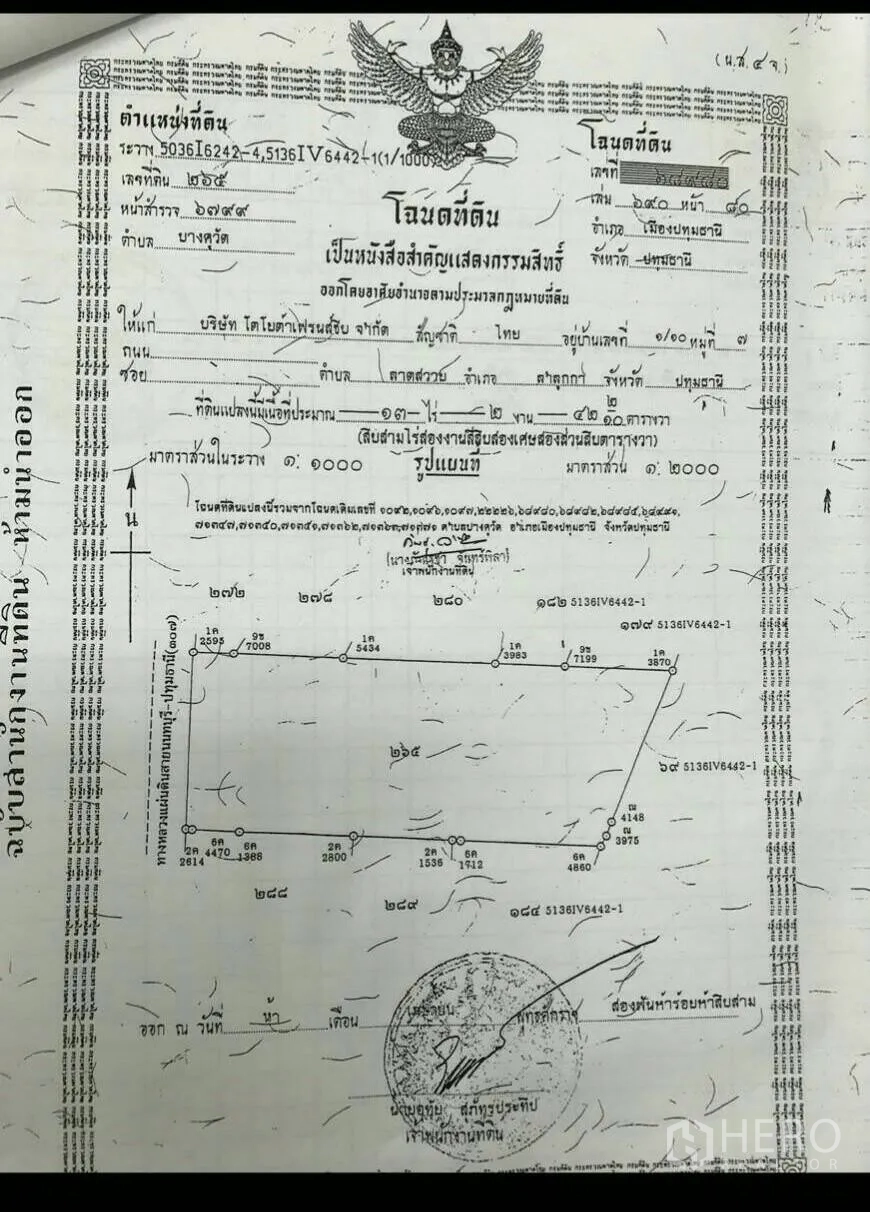 (น.ส.๔ จ.)
ตำแหน่งที่ดิน
ระวาง 5036I6242-4,5136IV6442-1(1/1000)
เลขที่ดิน ๒๖๕
หน้าสำรวจ ๖๗๙๙
ตำบล บางคูวัด
โฉนดที่ดิน
เลขที่
เล่ม ๖๙๐ หน้า ๘๐
อำเภอ เมืองปทุมธานี
จังหวัด ปทุมธานี
โฉนดที่ดิน
เป็นหนังสือสำคัญแสดงกรรมสิทธิ์
ออกโดยอาศัยอำนาจตามประมวลกฎหมายที่ดิน
ให้แก่ บริษัท โตโยต้าเฟรนส์ชิบ จำกัด สัญชาติ ไทย อยู่บ้านเลขที่ ๑/๑๐ หมู่ที่ ๗
ถนน
ซอย ตำบล ลาดสวาย อำเภอ ลำลูกกา จังหวัด ปทุมธานี
ที่ดินแปลงนี้มีเนื้อที่ประมาณ ๑๓ ไร่ ๒ งาน ๔๒ ๒/๑๐ ตารางวา
(สิบสามไร่สองงานสี่สิบสองเศษสองส่วนสิบตารางวา)
มาตราส่วนในระวาง ๑: ๑๐๐๐ รูปแผนที่ มาตราส่วน ๑: ๒๐๐๐
โฉนดที่ดินแปลงนี้รวมจากโฉนดเดิมเลขที่
ตำบลบางคูวัด อำเภอเมืองปทุมธานี จังหวัดปทุมธานี
เจ้าพนักงานที่ดิน
น
๒๗๒ ๒๗๘ ๒๘๐ ๑๘๒ 5136IV6442-1
๑๗๙ 5136IV6442-1
1ค 2595
9ช 7008
1ค 5434
1ค 3983
9ช 7199
1ค 3870
ทางหลวงแผ่นดินสายนนทบุรี-ปทุมธานี(๓๐๗)
๒๖๕
๖๙ 5136IV6442-1
ณ 4148
ณ 3975
2ค 2614
6ค 4470
6ค 1388
2ค 2800
2ค 1536
6ค 1712
6ค 4860
๒๘๘ ๒๘๙ ๑๘๔ 5136IV6442-1
ออก ณ วันที่ ห้า เดือน เมษายน พุทธศักราช สองพันห้าร้อยห้าสิบสาม
นายอุทัย สุภัทรประทีป
เจ้าพนักงานที่ดิน
ฉบับสำนักงานที่ดิน ห้ามนำออก
HERO